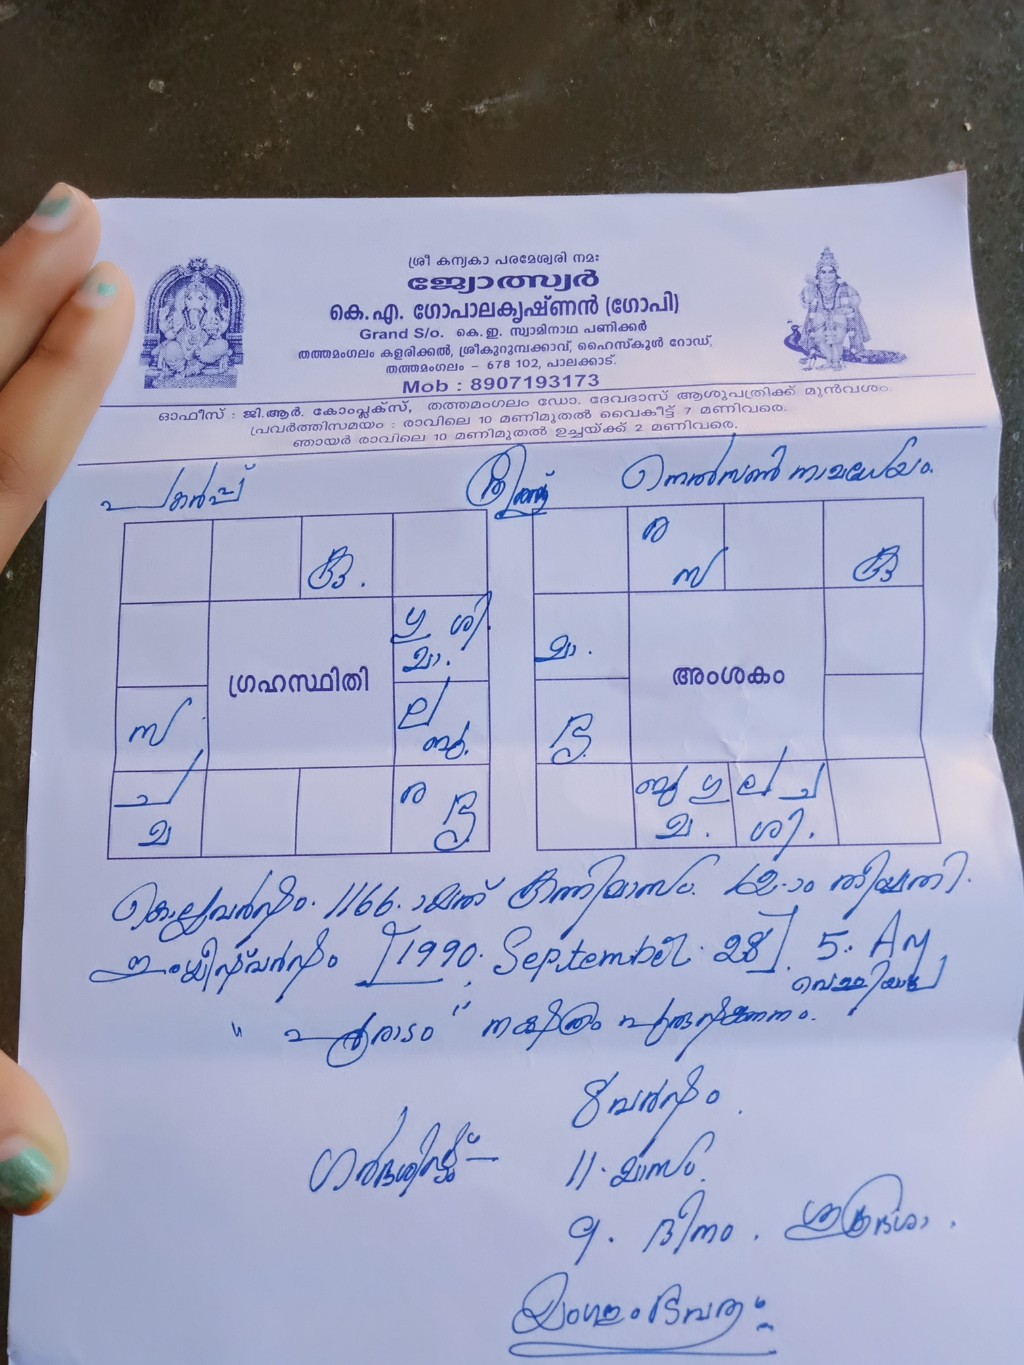 ശ്രീ കന്യകാ പരമേശ്വരി നമഃ
ജ്യോത്സ്യർ
കെ.എ. ഗോപാലകൃഷ്ണൻ (ഗോപി)
Grand S/o. കെ.ഇ. സ്വാമിനാഥ പണിക്കർ
തത്തമംഗലം കളരിക്കൽ, ശ്രീകുറുമ്പക്കാവ്, ഹൈസ്കൂൾ റോഡ്,
തത്തമംഗലം - 678 102, പാലക്കാട്.
Mob : 8907193173
ഓഫീസ് : ജി.ആർ. കോംപ്ലക്സ്, തത്തമംഗലം ഡോ. ദേവദാസ് ആശുപത്രിക്ക് മുൻവശം.
പ്രവർത്തിസമയം : രാവിലെ 10 മണിമുതൽ വൈകീട്ട് 7 മണിവരെ.
ഞായർ രാവിലെ 10 മണിമുതൽ ഉച്ചയ്ക്ക് 2 മണിവരെ.
പകർപ്പ് നെൽസൺ നാമധേയം.
കു.
ഗു ശി.
മാ.
ഗ്രഹസ്ഥിതി
സ
ല
ബു.
ച
ര
സ
കു
മാ.
അംശകം
ബു ഗു
ല ച
ശി.
കൊല്ലവർഷം. 1166.ാമത് കന്നിമാസം. 12-ാം തിയ്യതി.
ഇംഗ്ലീഷ് വർഷം [1990. September. 28]. 5. AM
വെള്ളിയാഴ്ച
" പൂരാടം " നക്ഷത്രം പുരുഷജനനം.
8 വർഷം.
ഗർഭശിഷ്ടം - 11. മാസം.
9. ദിനം. ശുക്രദശാ.